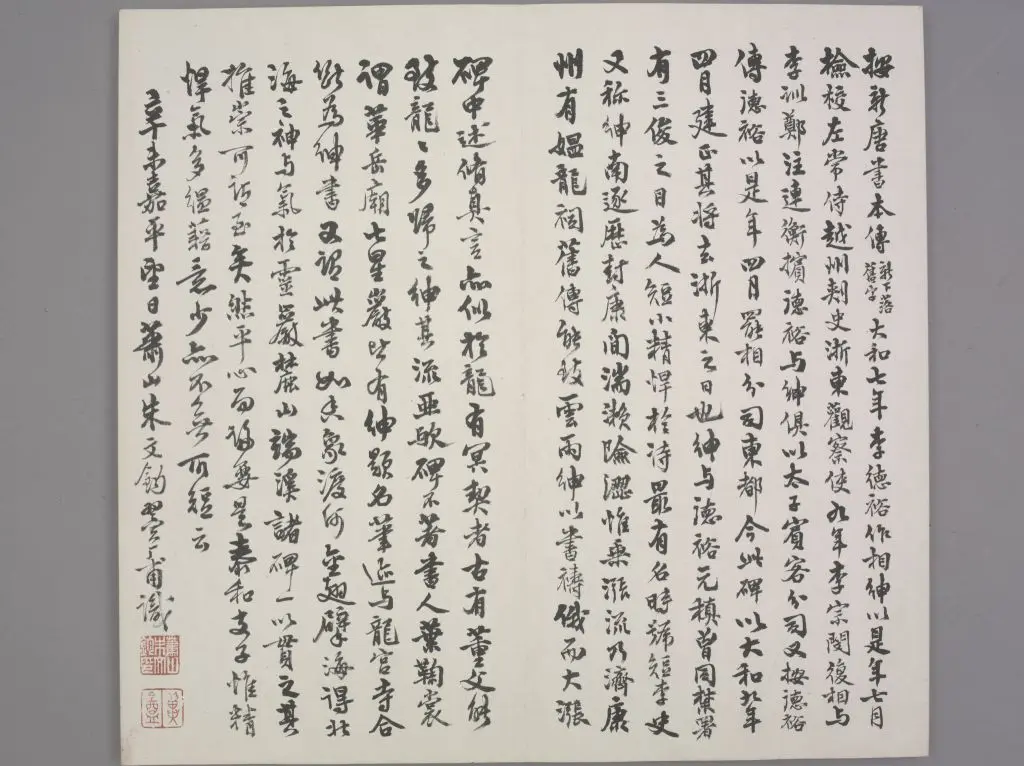 按新唐書本傳新下落舊字大和七年李德裕作相紳以是年七月
檢校左常侍越州刺史浙東觀察使九年李宗閔復相与
李訓鄭注連衡擯德裕与紳俱以太子賓客分司又按德裕
傳德裕以是年四月罷相分司東都今此碑以大和九年
四月建正其將去浙東之日也紳与德裕元稹曾同禁署
有三俊之目為人短小精悍於詩最有名時號短李史
又称紳南逐歷封康間湍瀨險澀惟乘漲流乃濟康
州有媼龍祠舊傳能致雲雨紳以書禱俄而大漲
碑中述脩真言亦似於龍有冥契者古有董父能
致龍龍多歸之紳其流亞歟碑不著書人葉鞠裳
謂華岳廟七星巖皆有紳題名筆迹与龍宮寺合
斷為紳書又謂此書如香象渡河金翅擘海得北
海之神与氣於靈巖麓山端溪諸碑一以貫之其
推崇可謂至矣然平心而論要是泰和支子惟精
悍氣多縕藉意少亦不無可短云
辛未嘉平望日蕭山朱文鈞翼盦甫識
蕭山朱文鈞印
翼盦